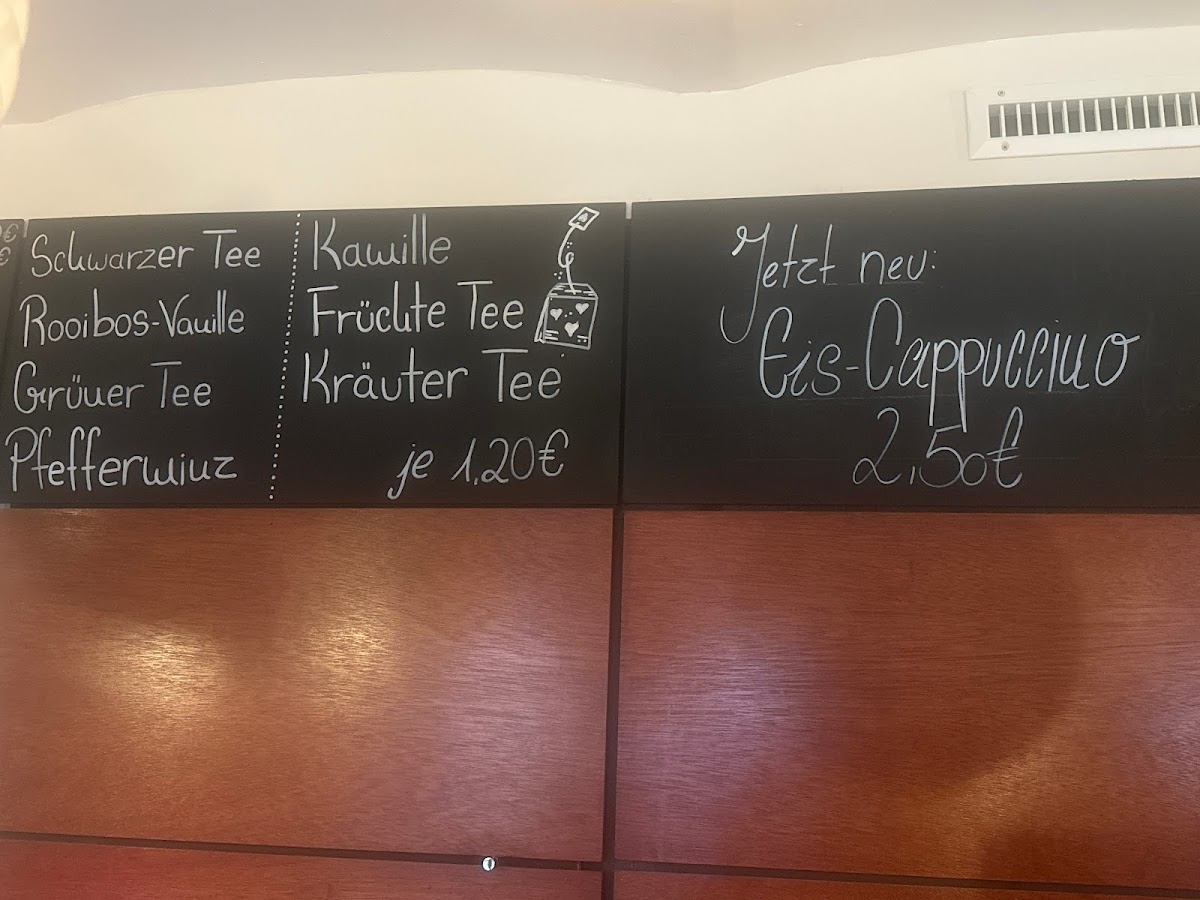 €
€
Schwarzer Tee
Rooibos-Vanille
Grüner Tee
Pfefferminz
Kamille
Früchte Tee
Kräuter Tee
je 1,20€
Jetzt neu:
Eis-Cappuccino
2,50€